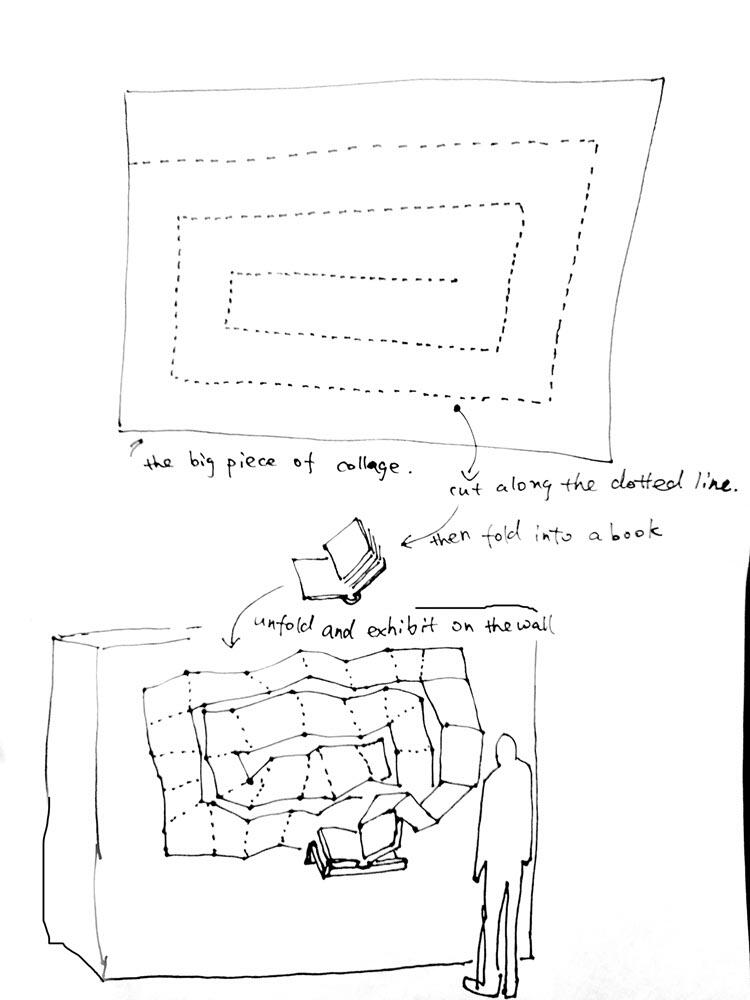 the big piece of collage.
cut along the dotted line.
then fold into a book
unfold and exhibit on the wall